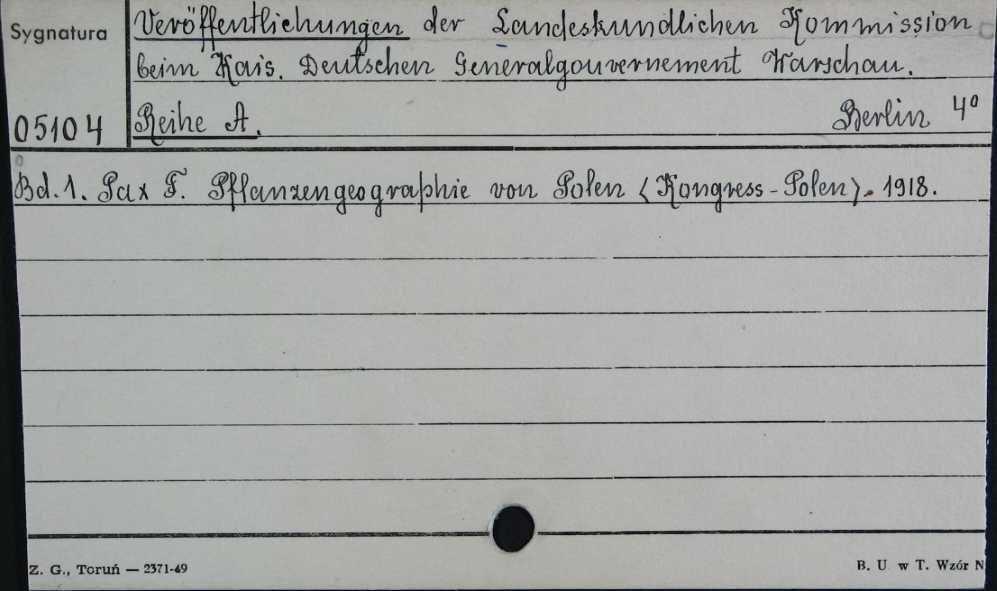 Sygnatura
Veröffentlichungen der Landeskundlichen Kommission
beim Kais. Deutschen Generalgouvernement Warschau.
05104
Reihe A. Berlin 4°
Bd. 1. Pax F. Pflanzengeographie von Polen <Kongress-Polen>. 1918.
Z. G., Toruń — 2371-49
B. U. w T. Wzór N